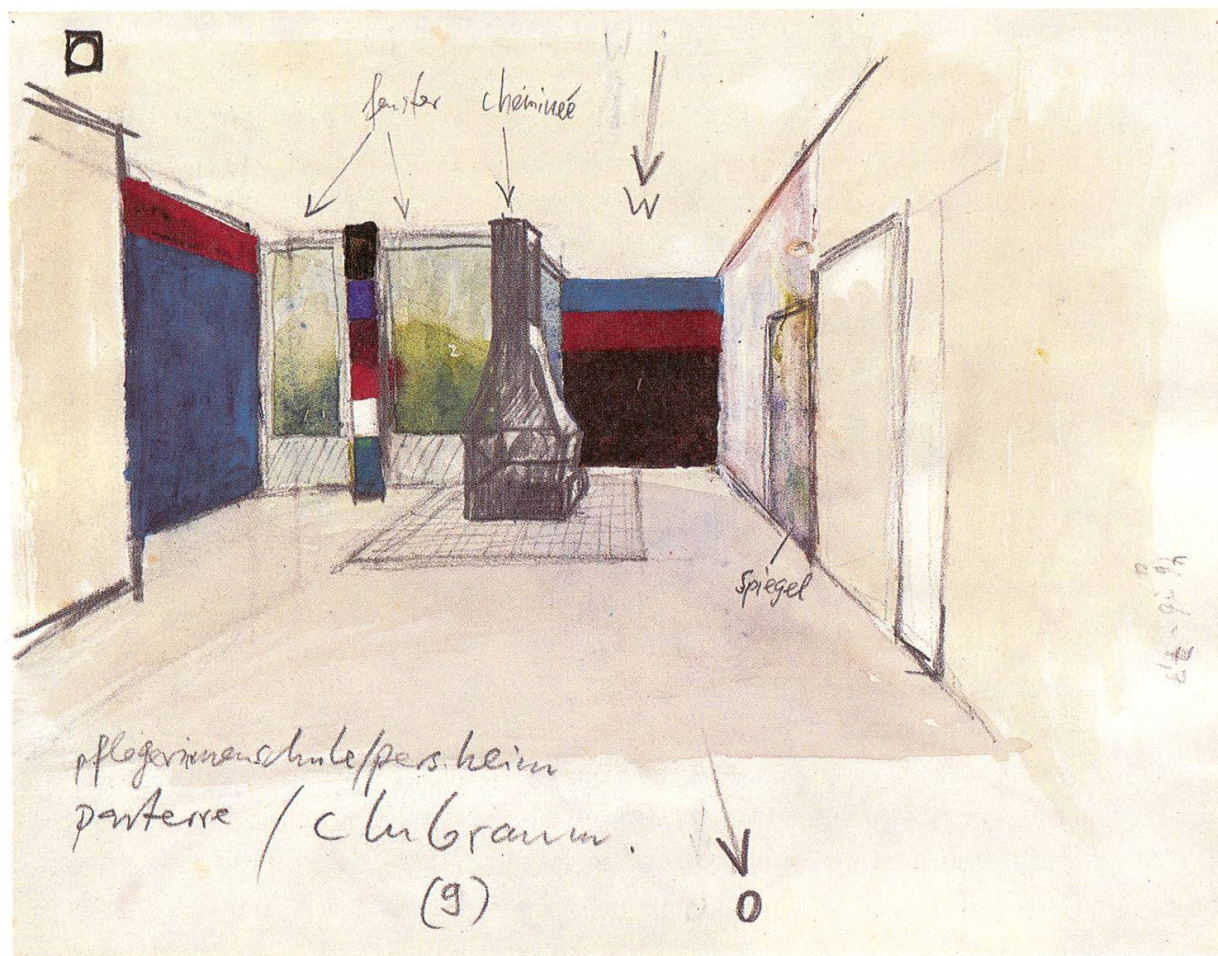 fenster cheminée
W
spiegel
pflegerinnenschule/pers.heim
parterre / clubraum.
(9)
O